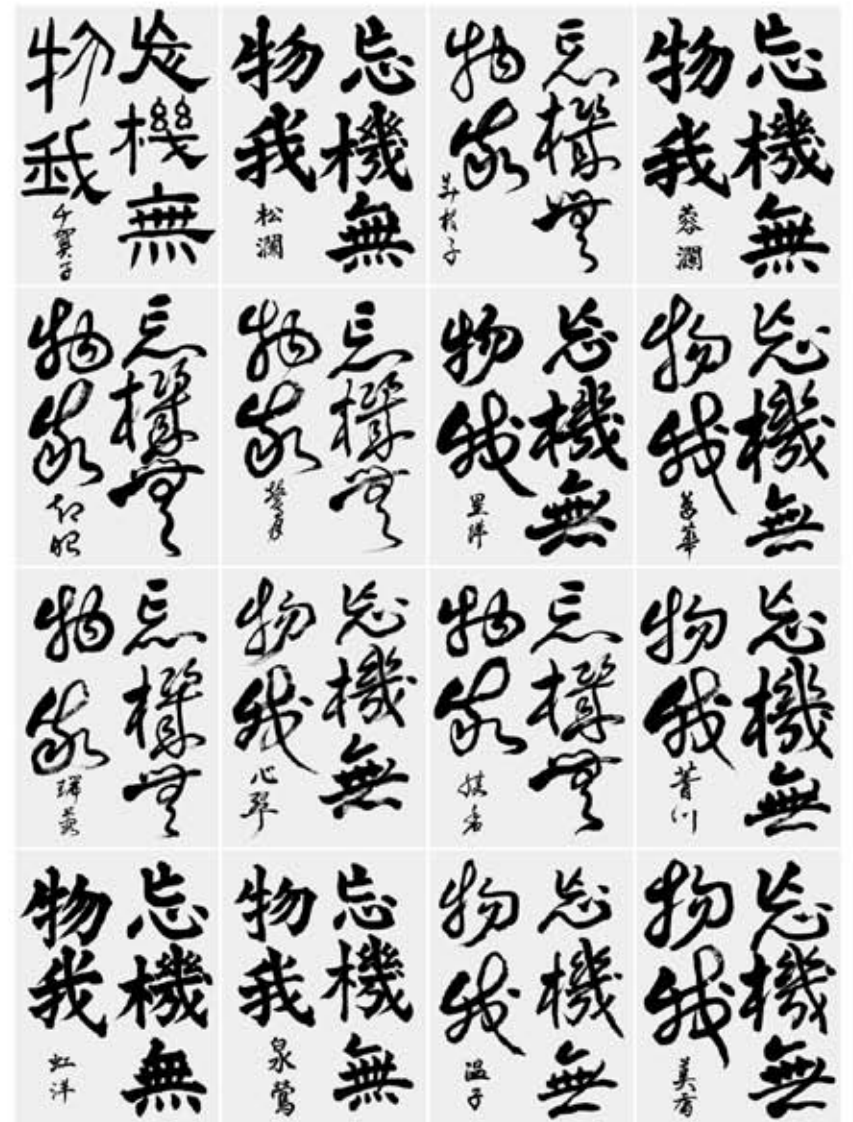 忘機無
物我
千賀子
忘機無
物我
松瀾
忘機無
物我
忘機無
物我
蓉瀾
忘機無
物我
忘機無
物我
忘機無
物我
忘機無
物我
忘機無
物我
忘機無
物我
心琴
忘機無
物我
忘機無
物我
忘機無
物我
虹洋
忘機無
物我
泉鶯
忘機無
物我
温子
忘機無
物我
美香